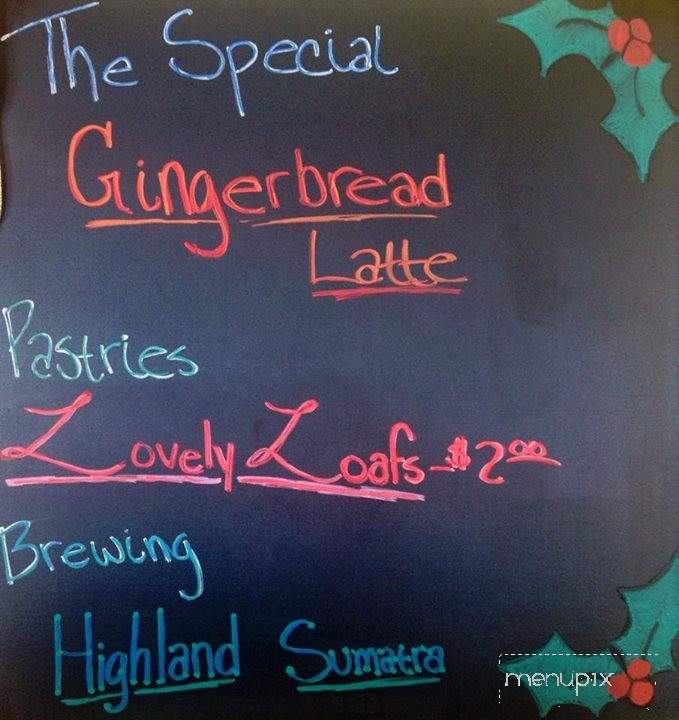 The Special
Gingerbread
Latte
Pastries
Lovely Loafs - $2.00
Brewing
Highland Sumatra
menupix